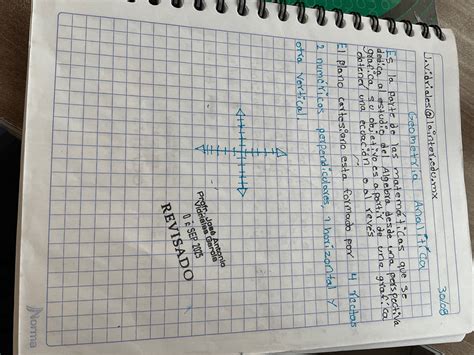 30/08
j.vidriales@lainter.edu.mx
Geometria Analitica
Es la parte de las matemáticas que se
dedica al estudio del Algebra desde una perspectiva
grafica, su objetivo es a partir de una grafica
obtener una ecuación o al reves.
El plano cartesiano esta formado por 4 rectas
2 numéricas perpendiculares, 1 horizontal y
otra vertical.
Profr. Jose Antonio
Vidriales Garcia
SEP 2023
REVISADO
Norma